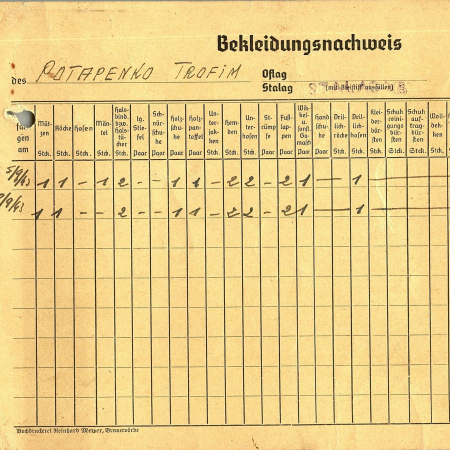 Bekleidungsnachweis
des POTAPENKO TROFIM Oflag
Stalag (mit Bleistift ausfüllen)
gen am Müt-zen Stck. Röcke Stck. Hosen Stck. Män-tel Stck. Hals-bind. bzw. hals-tü-cher Stck. lg. Stie-fel Paar Sch-nür-schu-he Paar Holz-schu-he Paar Holz-pan-toffel Paar Un-ter-jak-ken Stck. Hem-den Stck. Un-ter-hosen Stck. Strü-mpfe Paar Fuß-lap-pen Paar Wik-kel u. sonst. Ga-masch Paar Hand-schu-he Paar Dril-lich-röcke Stck. Dril-lich-hosen Stck. Klei-der-bür-sten Stck. Schuh reini-gungs bür-sten Stck. Schuh auf-trag-bür-sten Stck. Woll-dek-ken Stck.
5/9/43 1 1 - 1 2 - - 1 1 - 2 2 - 2 1 - - 1
9/43 1 1 - - 2 - - 1 1 - 2 2 - 2 1 - - 1
Buchdruckerei Reinhard Meyer, Bremervörde